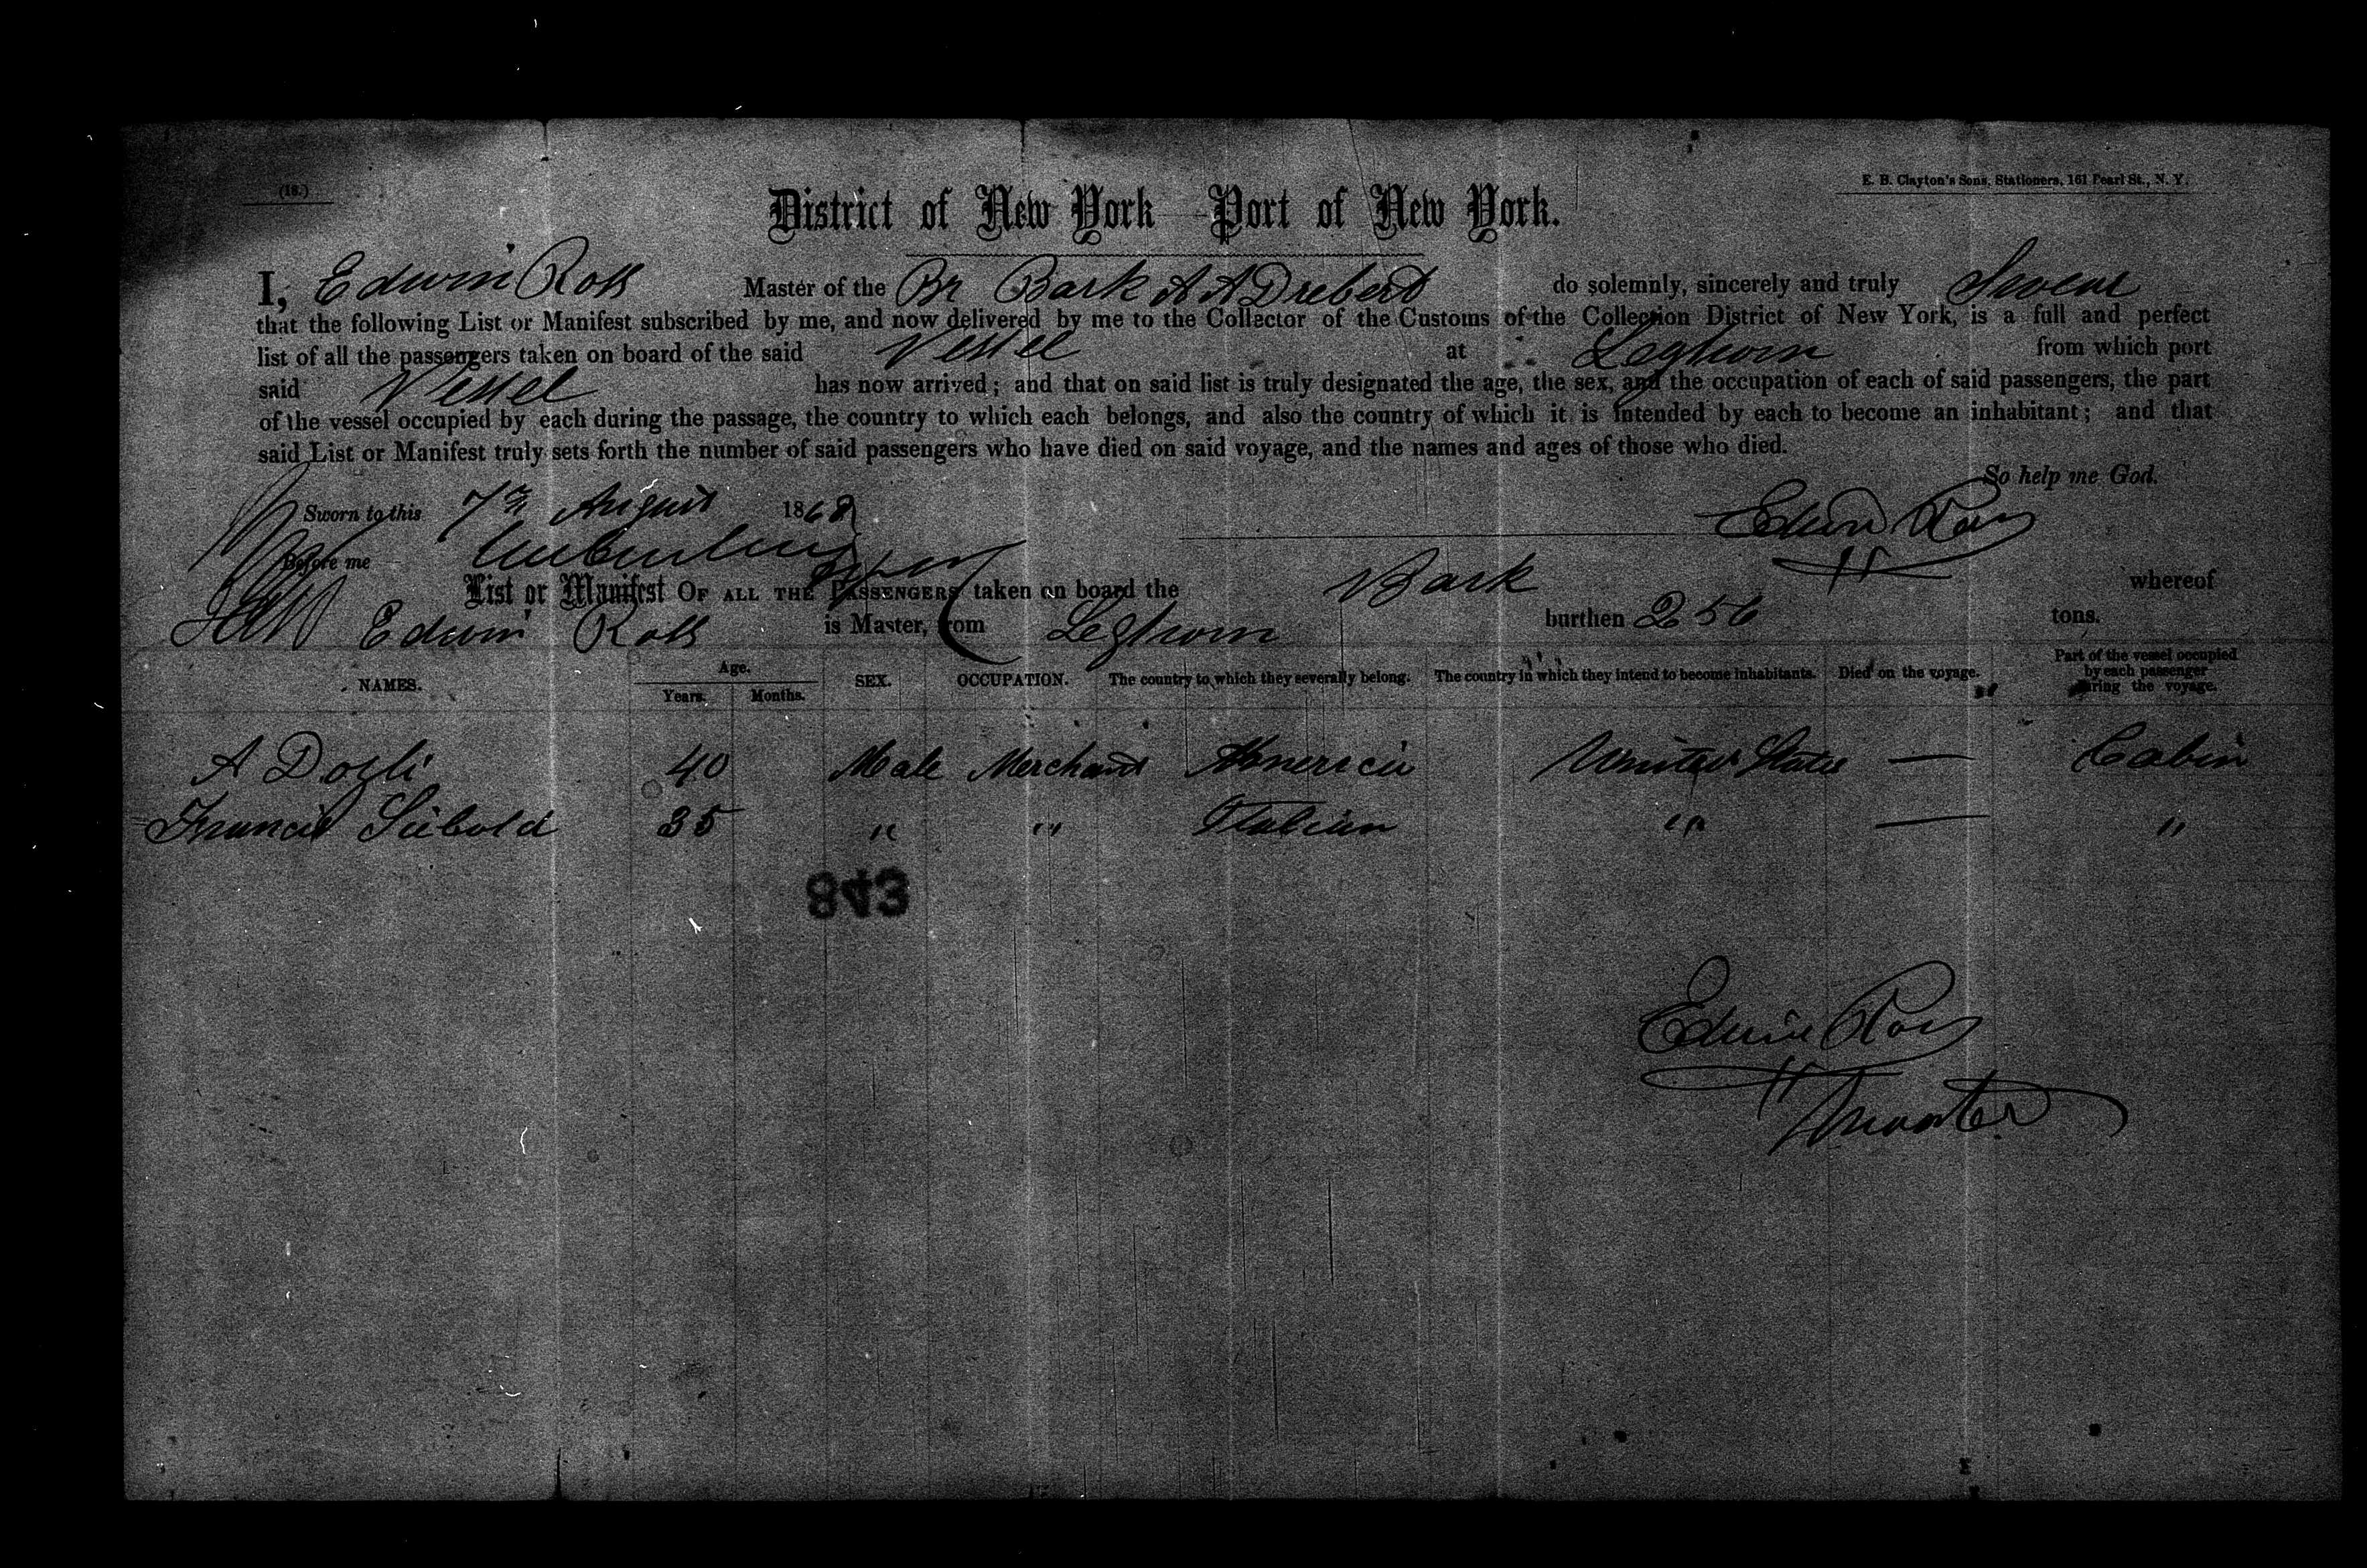 (18.)
E. B. Clayton's Sons, Stationers, 161 Pearl St., N. Y.
District of New York Port of New York.
I, Edwin Ross Master of the Br Bark A A Drebert do solemnly, sincerely and truly Swear
that the following List or Manifest subscribed by me, and now delivered by me to the Collector of the Customs of the Collection District of New York, is a full and perfect
list of all the passengers taken on board of the said Vessel at Leghorn from which port
said Vessel has now arrived; and that on said list is truly designated the age, the sex, and the occupation of each of said passengers, the part
of the vessel occupied by each during the passage, the country to which each belongs, and also the country of which it is intended by each to become an inhabitant; and that
said List or Manifest truly sets forth the number of said passengers who have died on said voyage, and the names and ages of those who died.
So help me God.
Sworn to this 7th August 1868
Edwin Ross
Before me
List or Manifest OF ALL THE PASSENGERS taken on board the Bark whereof
Edwin Ross is Master, from Leghorn burthen 256 tons.
NAMES. Age. Years. Months. SEX. OCCUPATION. The country to which they severally belong. The country in which they intend to become inhabitants. Died on the voyage. Part of the vessel occupied by each passenger during the voyage.
A Dogli 40 Male Merchant America United States — Cabin
Francis Siebold 35 " " Italian " — "
843
Edwin Ross
Master